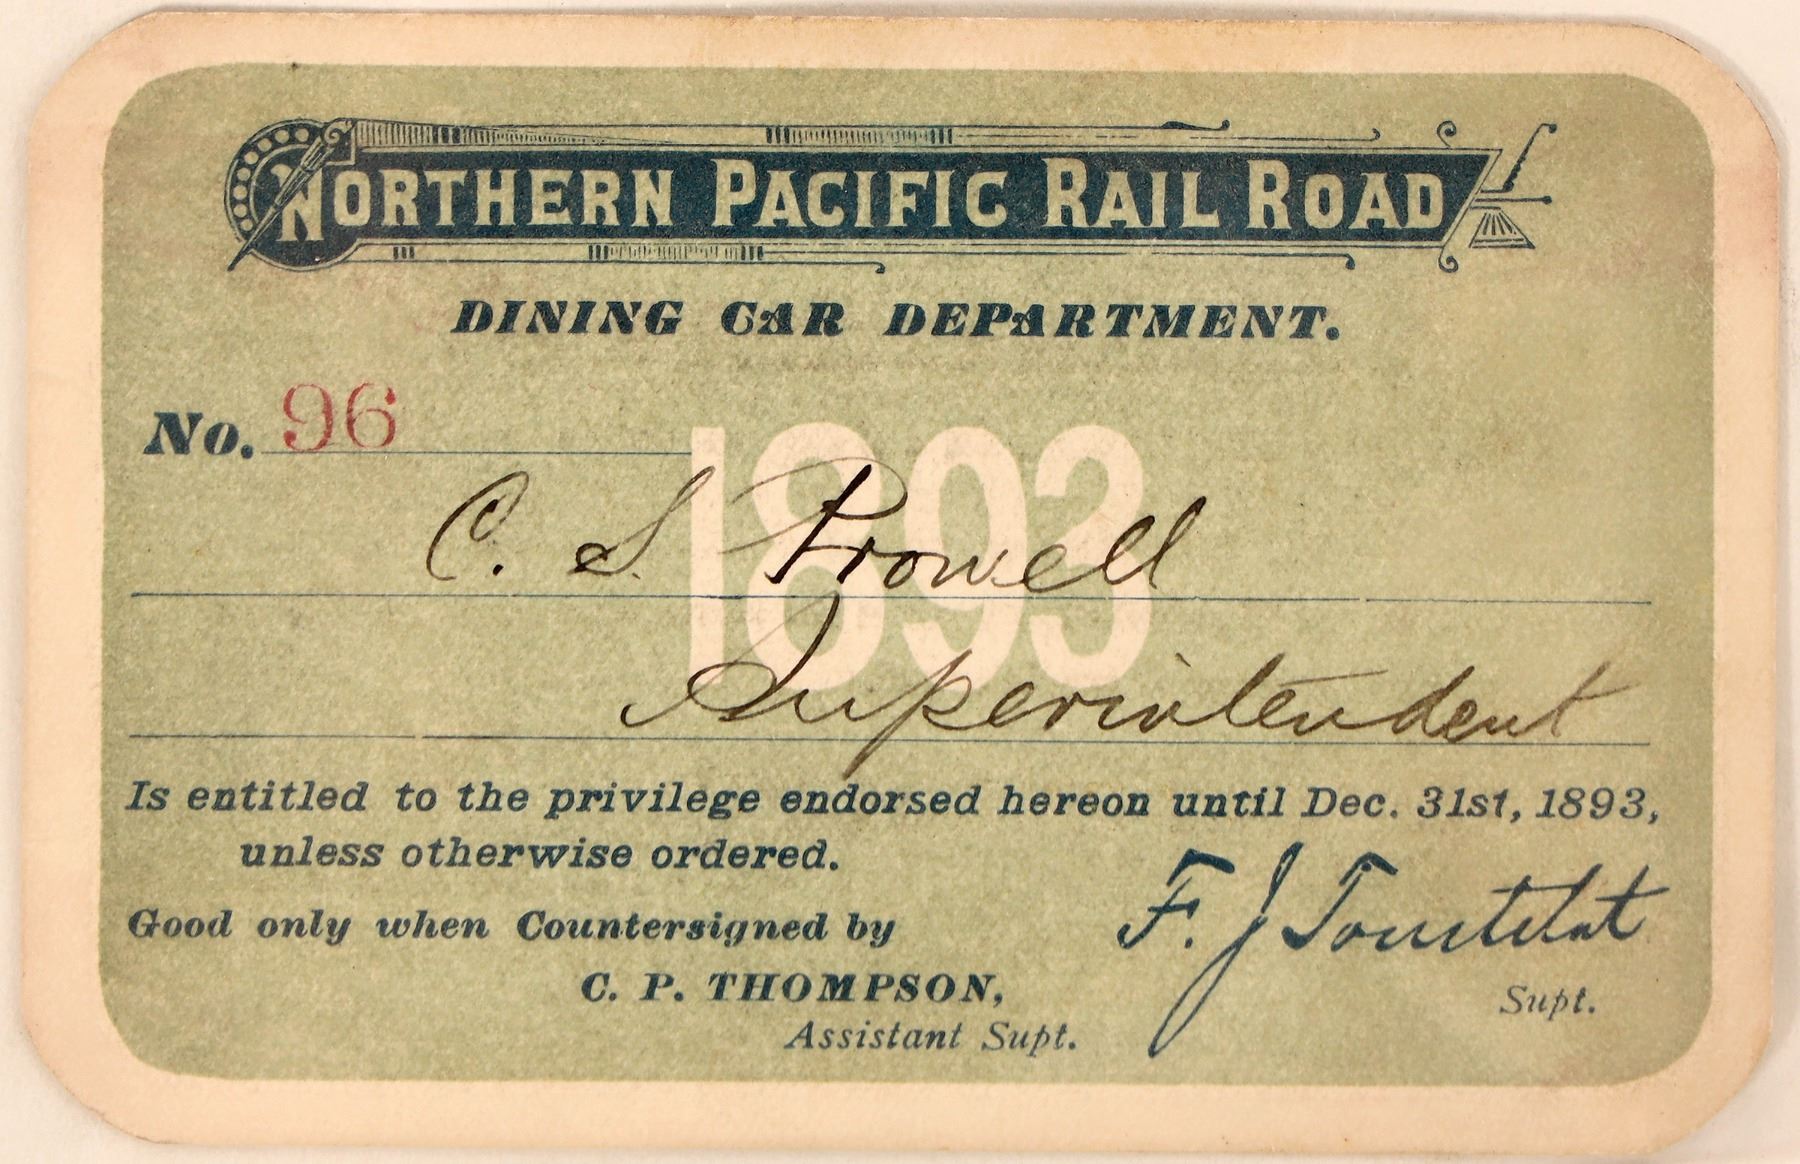 NORTHERN PACIFIC RAIL ROAD
DINING CAR DEPARTMENT.
No. 96
1893
C. S. Prowell
Superintendent
Is entitled to the privilege endorsed hereon until Dec. 31st, 1893,
unless otherwise ordered.
Good only when Countersigned by
C. P. THOMPSON,
Assistant Supt.
F. J.
Supt.